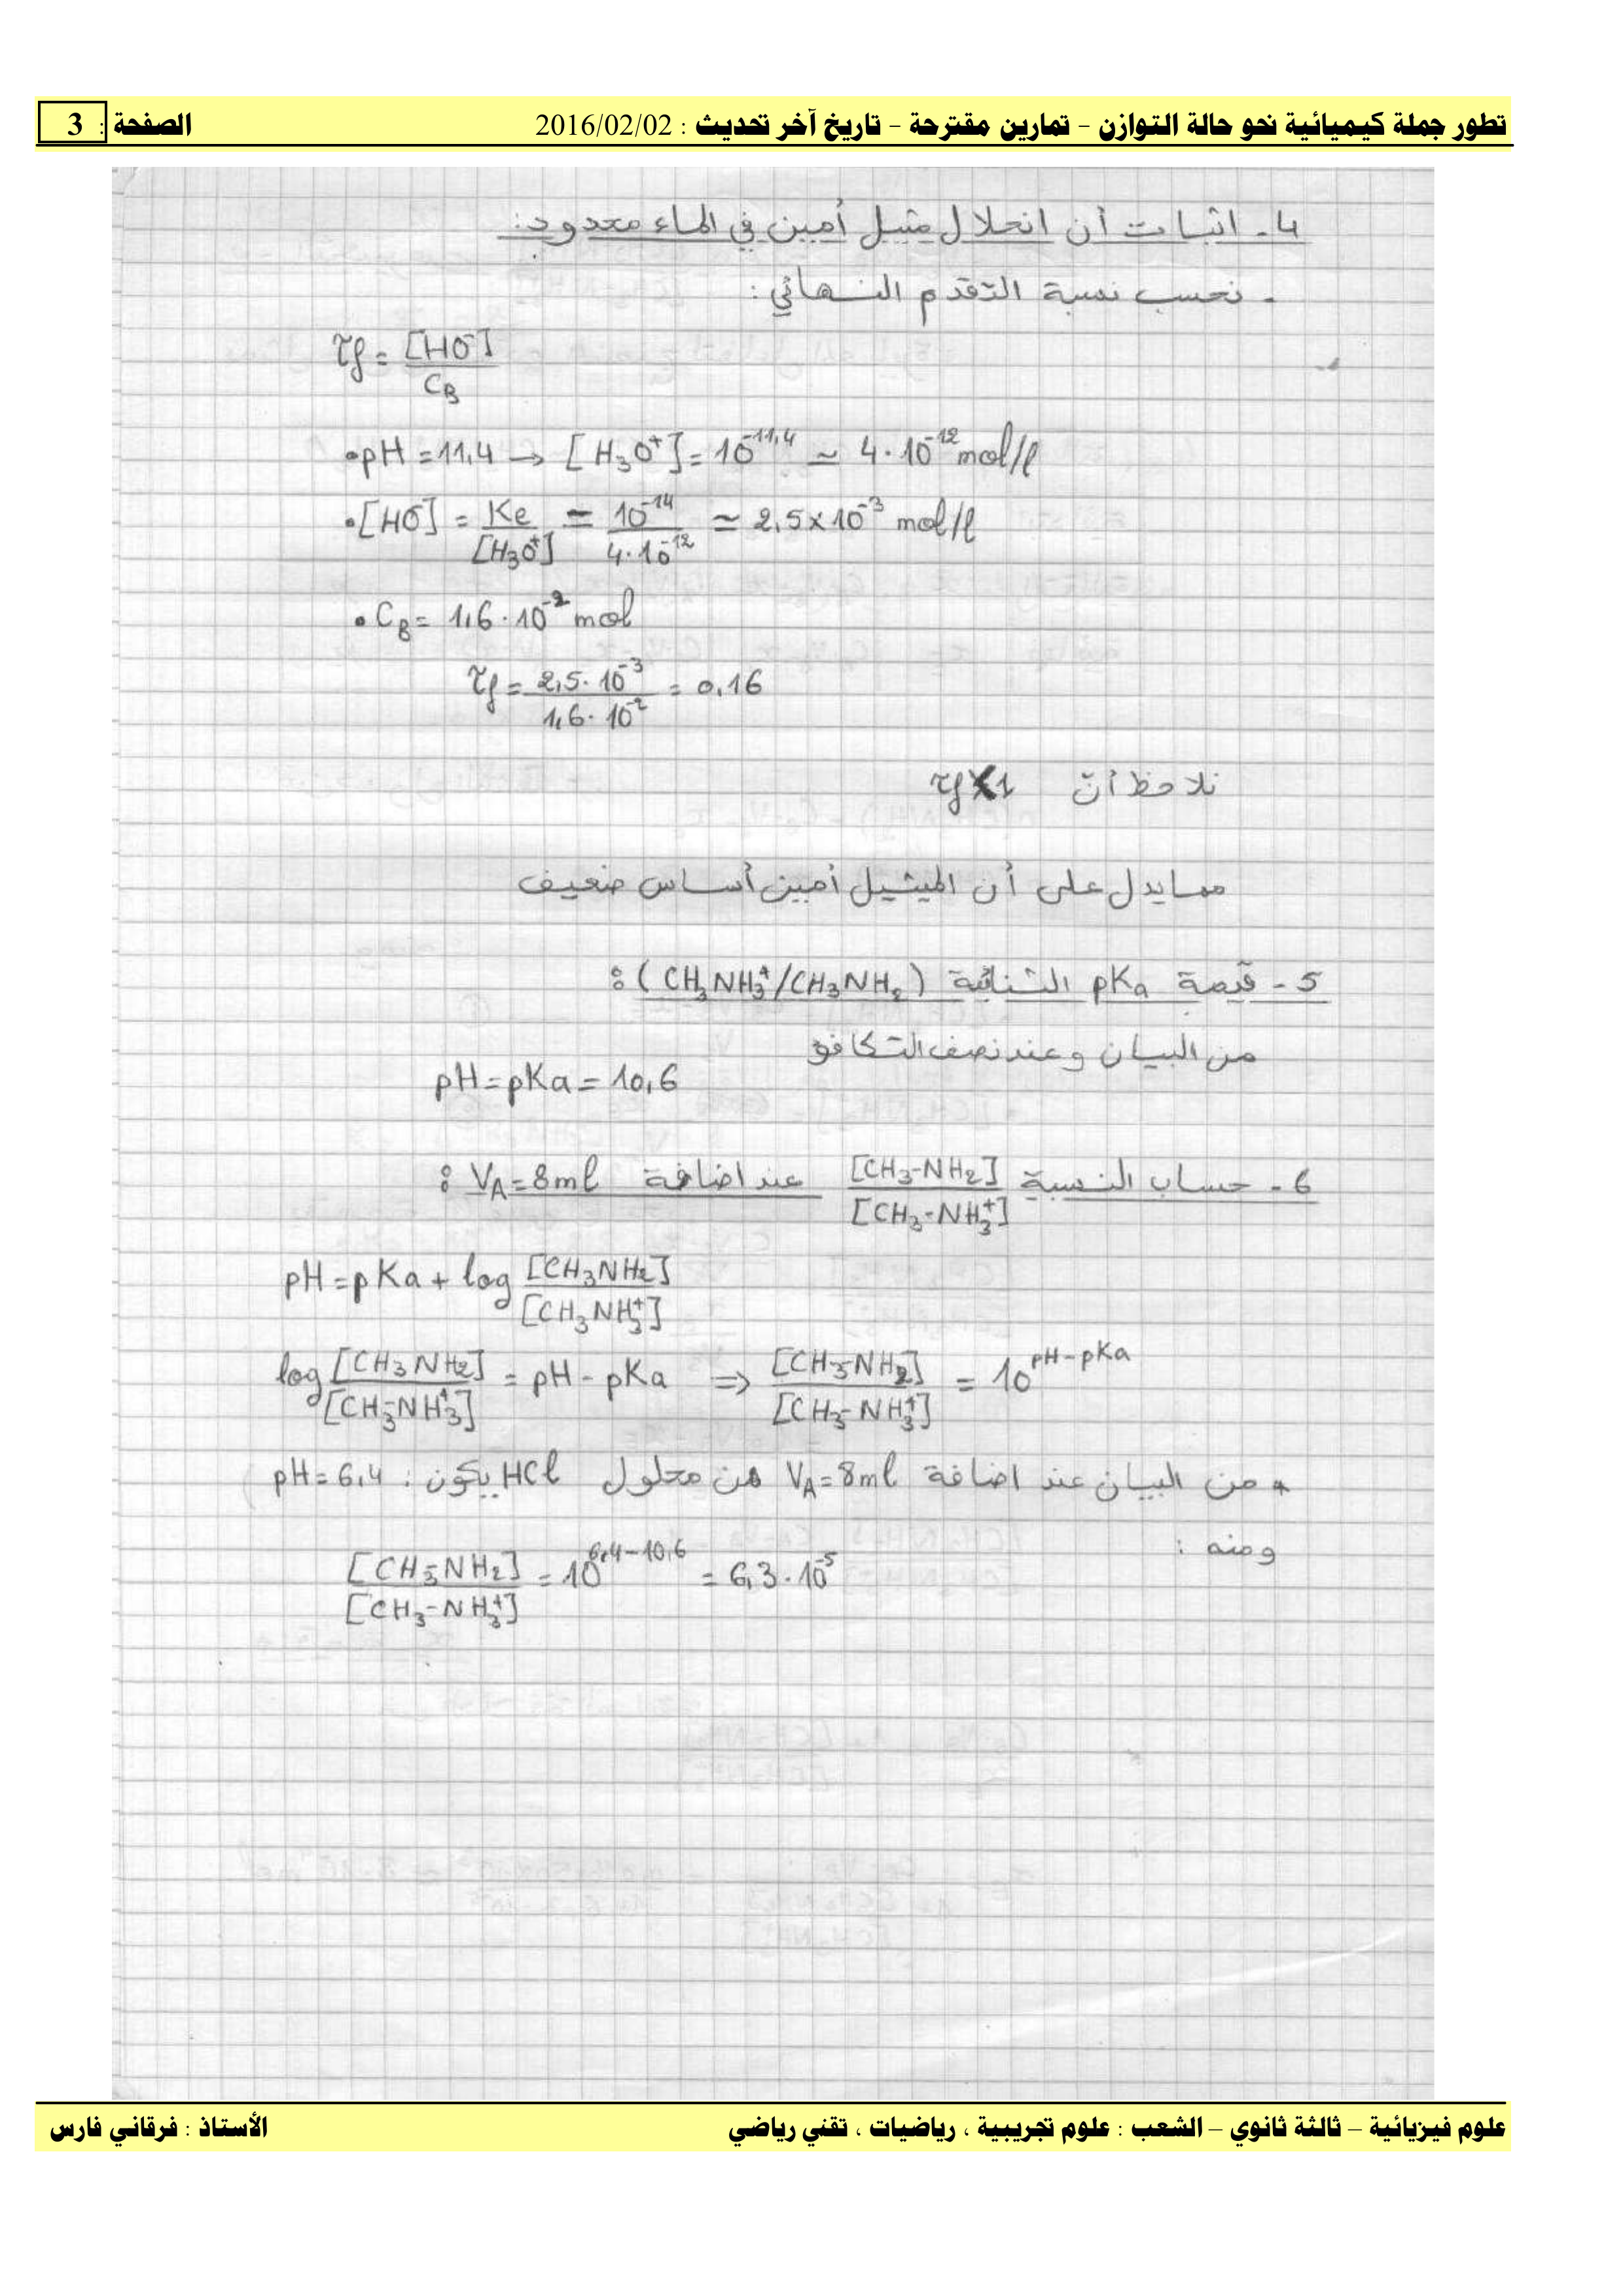 تطور جملة كيميائية نحو حالة التوازن – تمارين مقترحة – تاريخ آخر تحديث : 2016/02/02 الصفحة : 3
4- اثبات أن انحلال مثيل أمين في الماء محدود:
- نحسب نسبة التقدم النهائي :
τf = [HO⁻] / C_B
• pH = 11,4 → [H₃O⁺] = 10^-11,4 ≃ 4·10^-12 mol/l
• [HO⁻] = Ke / [H₃O⁺] = 10^-14 / 4·10^-12 ≃ 2,5×10^-3 mol/l
• C_B = 1,6·10^-2 mol
τf = 2,5·10^-3 / 1,6·10^-2 = 0,16
نلاحظ أن τf < 1
مما يدل على أن الميثيل أمين أساس ضعيف
5 - قيمة pKa الثنائية (CH₃NH₃⁺/CH₃NH₂) :
من البيان وعند نصف التكافؤ
pH = pKa = 10,6
6 - حساب النسبة [CH₃-NH₂] / [CH₃-NH₃⁺] عند اضافة V_A = 8 ml :
pH = pKa + log [CH₃NH₂] / [CH₃NH₃⁺]
log [CH₃NH₂] / [CH₃-NH₃⁺] = pH - pKa ⇒ [CH₃-NH₂] / [CH₃-NH₃⁺] = 10^pH-pKa
* من البيان عند اضافة V_A = 8 ml من محلول HCl يكون : pH = 6,4
ومنه :
[CH₃-NH₂] / [CH₃-NH₃⁺] = 10^6,4-10,6 = 6,3·10^-5
علوم فيزيائية – ثالثة ثانوي – الشعب : علوم تجريبية ، رياضيات ، تقني رياضي الأستاذ : فرقاني فارس